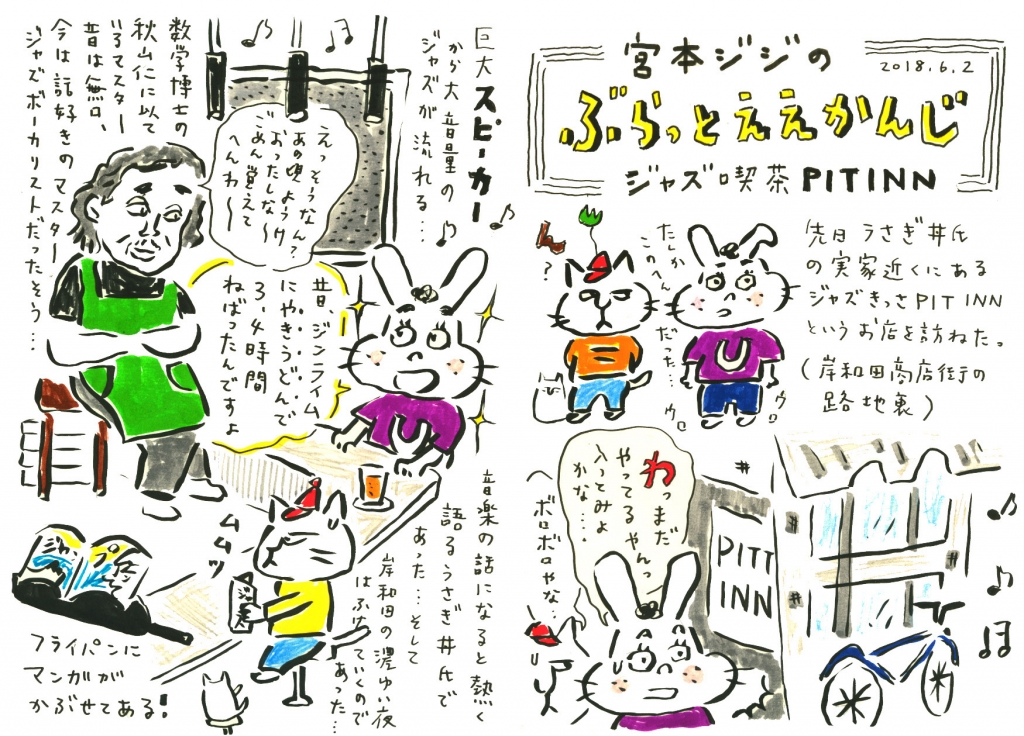 宮本ジジの
2018.6.2
ぶらっとええかんじ
ジャズ喫茶PITINN
先日うさぎ井氏
の実家近くにある
ジャズきっさPIT INN
というお店を訪ねたっ
(岸和田商店街の
路地裏)
たしか
このへん
だった…
ウロ
ウロ
ん?
わっまだ
やってるやんっ
入ってみよ
かな……
ボロボロやな…
PITT
INN
巨大スピーカー
から大音量の
ジャズが流れる…
数学博士の
秋山仁に似て
いるマスター
昔は無口、
今は話好きのマスター
ジャズボーカリストだったそう…
えっそうなん?
あの頃ようけ
おったしな〜
ごめん覚えて
へんわ〜
昔、ジンライム
にやきうどんで
3、4時間
ねばったんですよ
音楽の話になると熱く
語るうさぎ井氏で
あった…そして
岸和田の濃ゆい夜
はふけていくので
あった…
ムムッ
フライパンに
マンガが
かぶせてある!